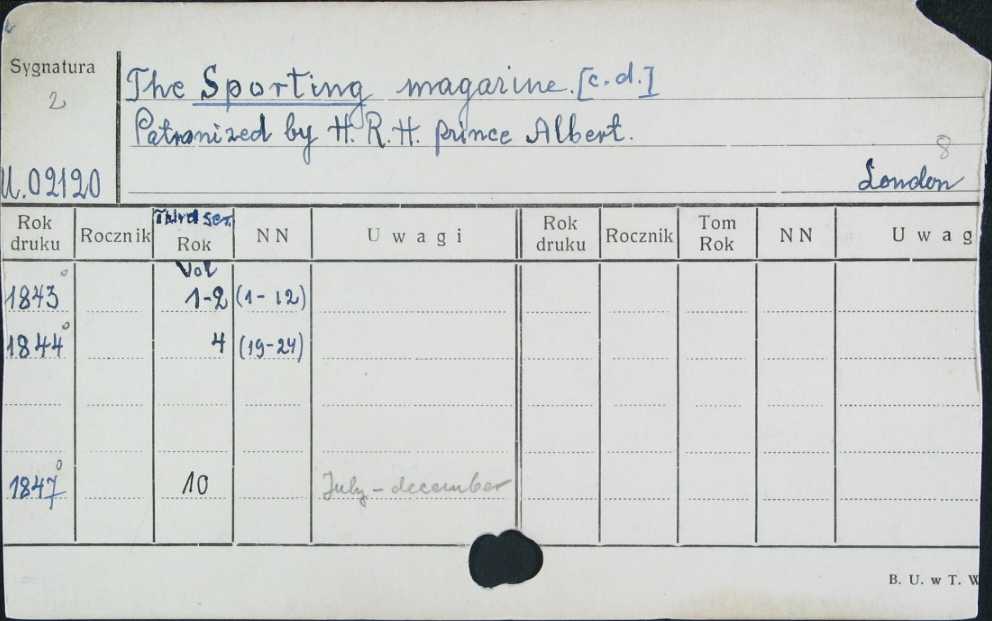 Sygnatura
2
U.02120
The Sporting magazine. [c.d.]
Patronized by H.R.H. prince Albert.
8
London
Rok druku Rocznik Third ser. Rok NN Uwagi Rok druku Rocznik Tom Rok NN Uwag
Vol
1843° 1-2 (1-12)
1844° 4 (19-24)
1847° 10 July - december
B. U. w T. W